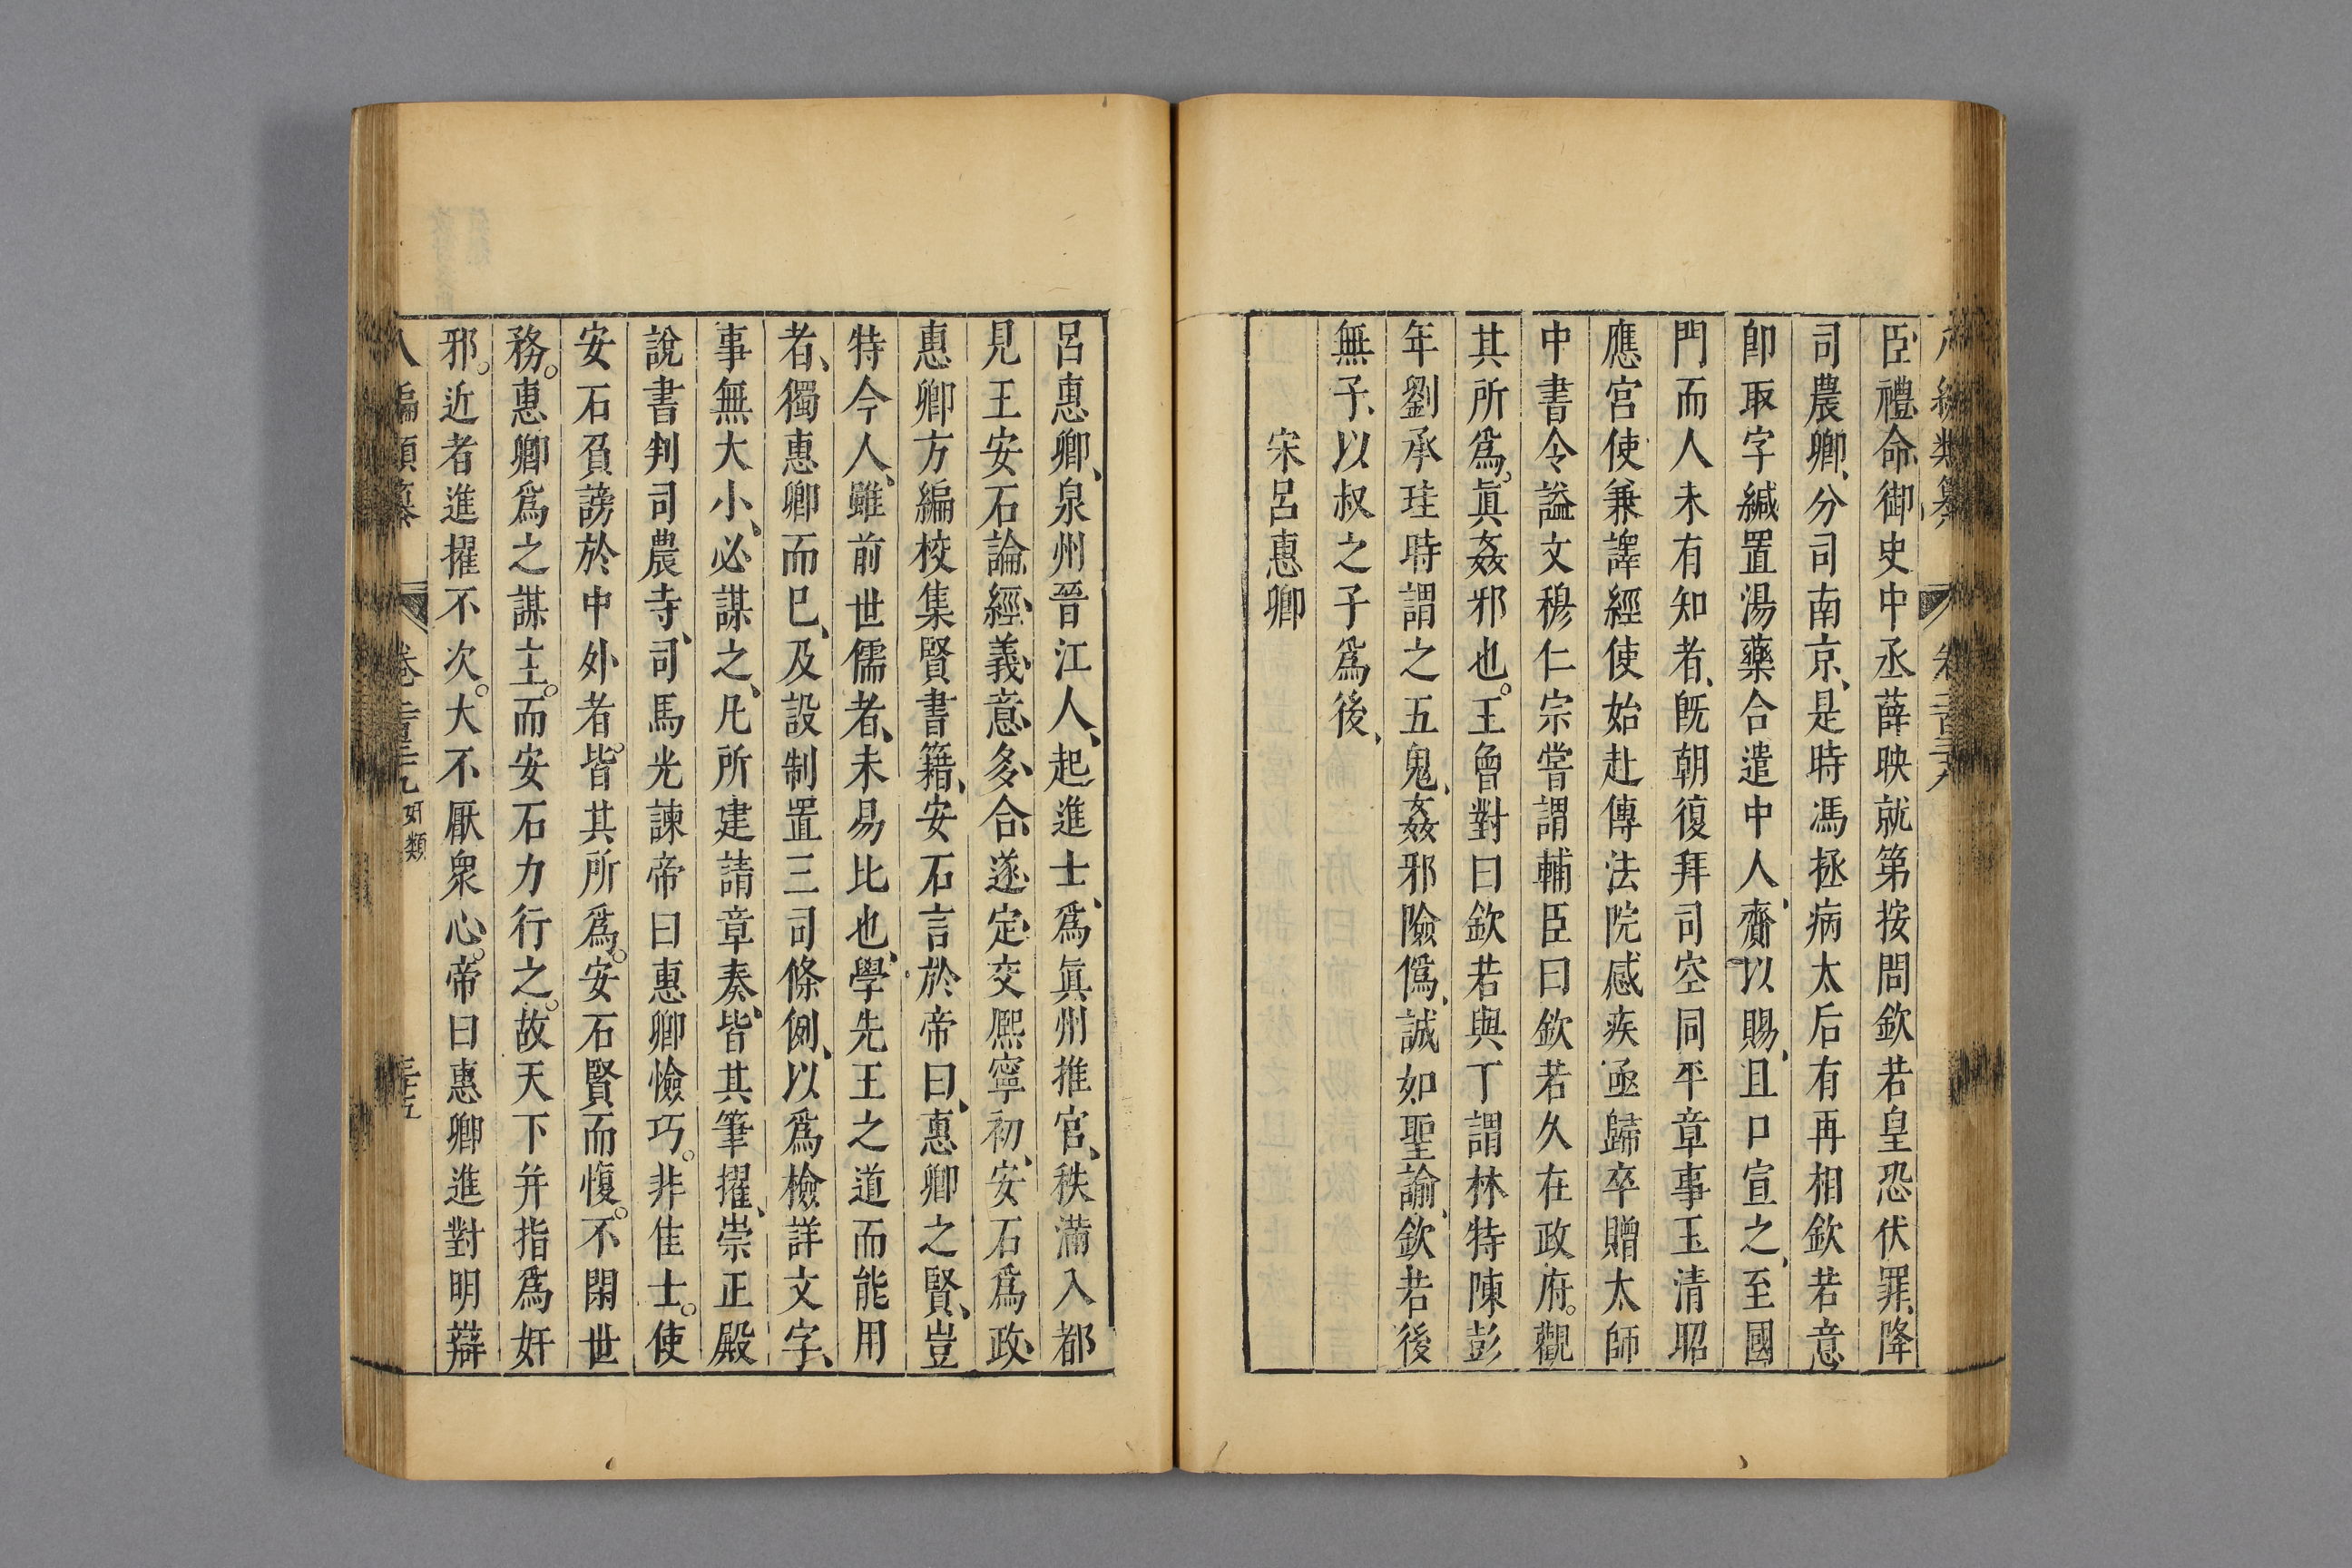 臣禮命御史中丞薛映就第按問欽若皇恐伏罪、降
司農卿、分司南京、是時馮拯病太后有再相欽若意
卽取字緘置湯藥合遣中人、齎以賜、且口宣之、至國
門而人未有知者、旣朝復拜司空同平章事玉清昭
應宮使兼譯經使始赴傳法院感疾亟歸卒贈太師
中書令謚文穆仁宗嘗謂輔臣曰欽若久在政府。觀
其所爲。眞姦邪也。王會對曰欽若與丁謂林特陳彭
年劉承珪時謂之五鬼、姦邪險僞、誠如聖諭、欽若後
無子、以叔之子爲後、
宋呂惠卿
呂惠卿、泉州晉江人、起進士、爲眞州推官、秩滿入都
見王安石論經義意多合遂定交熈寧初、安石爲政、
惠卿方編校集賢書籍、安石言於帝曰、惠卿之賢、豈
特今人、雖前世儒者、未易比也、學先王之道而能用
者、獨惠卿而已、及設制置三司條例、以爲檢詳文字、
事無大小、必謀之、凡所建請章奏、皆其筆擢、崇正殿
說書判司農寺、司馬光諫帝曰惠卿憸巧。非佳士。使
安石負謗於中外者。皆其所爲。安石賢而愎。不閑世
務。惠卿爲之謀主。而安石力行之。故天下并指爲奸
邪。近者進擢不次。大不厭衆心。帝曰惠卿進對明辯
八編類纂 卷二百三十九 奸類 三十五